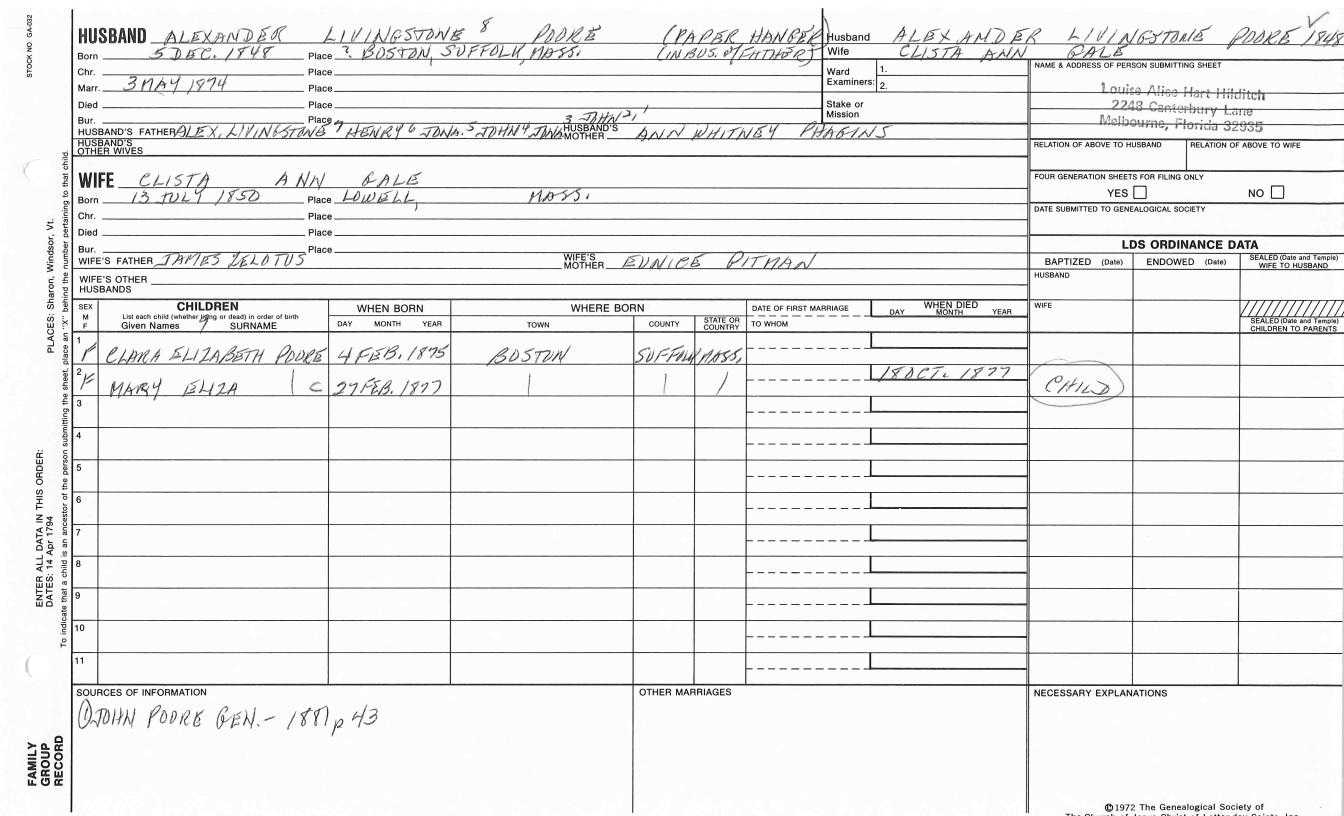 STOCK NO. GA-032
HUSBAND ALEXANDER LIVINGSTONE 8 POORE (PAPER HANGER)
Born 5 DEC. 1848 Place ? BOSTON, SUFFOLK, MASS. (IN BUS. of FATHER)
Chr. Place
Marr. 3 MAY 1874 Place
Died Place
Bur. Place
HUSBAND'S FATHER ALEX. LIVINGSTONE 7 HENRY 6 JONA. 5 JOHN 4 JONA 3 JOHN 2, 1 HUSBAND'S MOTHER ANN WHITNEY PHAGINS
HUSBAND'S OTHER WIVES
Husband ALEXANDER LIVINGSTONE POORE 1848
Wife CLISTA ANN GALE
Ward Examiners: 1.
2.
Stake or Mission
NAME & ADDRESS OF PERSON SUBMITTING SHEET
Louise Alice Hart Hilditch
2248 Canterbury Lane
Melbourne, Florida 32935
RELATION OF ABOVE TO HUSBAND RELATION OF ABOVE TO WIFE
FOUR GENERATION SHEETS FOR FILING ONLY
YES NO
DATE SUBMITTED TO GENEALOGICAL SOCIETY
WIFE CLISTA ANN GALE
Born 13 JULY 1850 Place LOWELL, MASS.
Chr. Place
Died Place
Bur. Place
WIFE'S FATHER JAMES ZELOTUS WIFE'S MOTHER EUNICE PITMAN
WIFE'S OTHER HUSBANDS
LDS ORDINANCE DATA
BAPTIZED (Date) ENDOWED (Date) SEALED (Date and Temple) WIFE TO HUSBAND
HUSBAND
WIFE
SEALED (Date and Temple) CHILDREN TO PARENTS
SEX M F
CHILDREN
List each child (whether living or dead) in order of birth
Given Names 9 SURNAME
WHEN BORN
DAY MONTH YEAR
WHERE BORN
TOWN COUNTY STATE OR COUNTRY
DATE OF FIRST MARRIAGE
TO WHOM
WHEN DIED
DAY MONTH YEAR
1 F CLARA ELIZABETH POORE 4 FEB. 1875 BOSTON SUFFOLK MASS.
2 F MARY ELIZA | C 27 FEB. 1877 | | | 18 OCT. 1877 CHILD
3
4
5
6
7
8
9
10
11
SOURCES OF INFORMATION
① JOHN POORE GEN.- 1881 p 43
OTHER MARRIAGES
NECESSARY EXPLANATIONS
FAMILY GROUP RECORD
ENTER ALL DATA IN THIS ORDER:
DATES: 14 Apr 1794
PLACES: Sharon, Windsor, Vt.
To indicate that a child is an ancestor of the person submitting the sheet, place an "X" behind the number pertaining to that child.
©1972 The Genealogical Society of
The Church of Jesus Christ of Latter-day Saints, Inc.